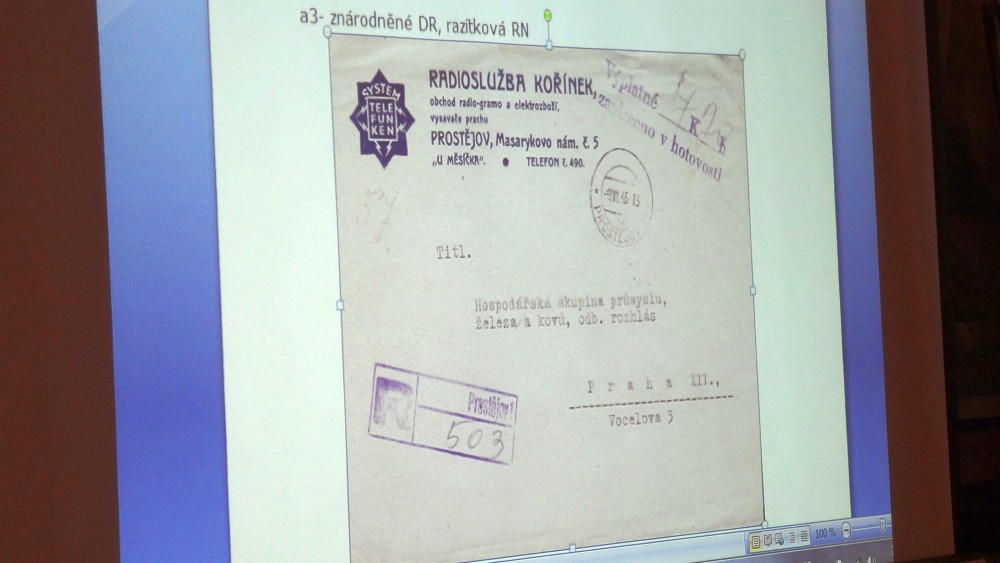 a3- znárodněné DR, razítková RN
SYSTEM
TELE
FUN
KEN
RADIOSLUŽBA KOŘÍNEK,
obchod radio-gramo a elektrozboží,
vysavače prachu
PROSTĚJOV, Masarykovo nám. č. 5
„U MĚSÍČKA“. ● TELEFON č. 490.
Výplatné
K h
zaplaceno v hotovosti
PROSTĚJOV
57
Titl.
Hospodářská skupina průmyslu,
železa a kovů, odb. rozhlas
P r a h a XII.,
Vocelova 3
R
Prostějov 1
503
100 %